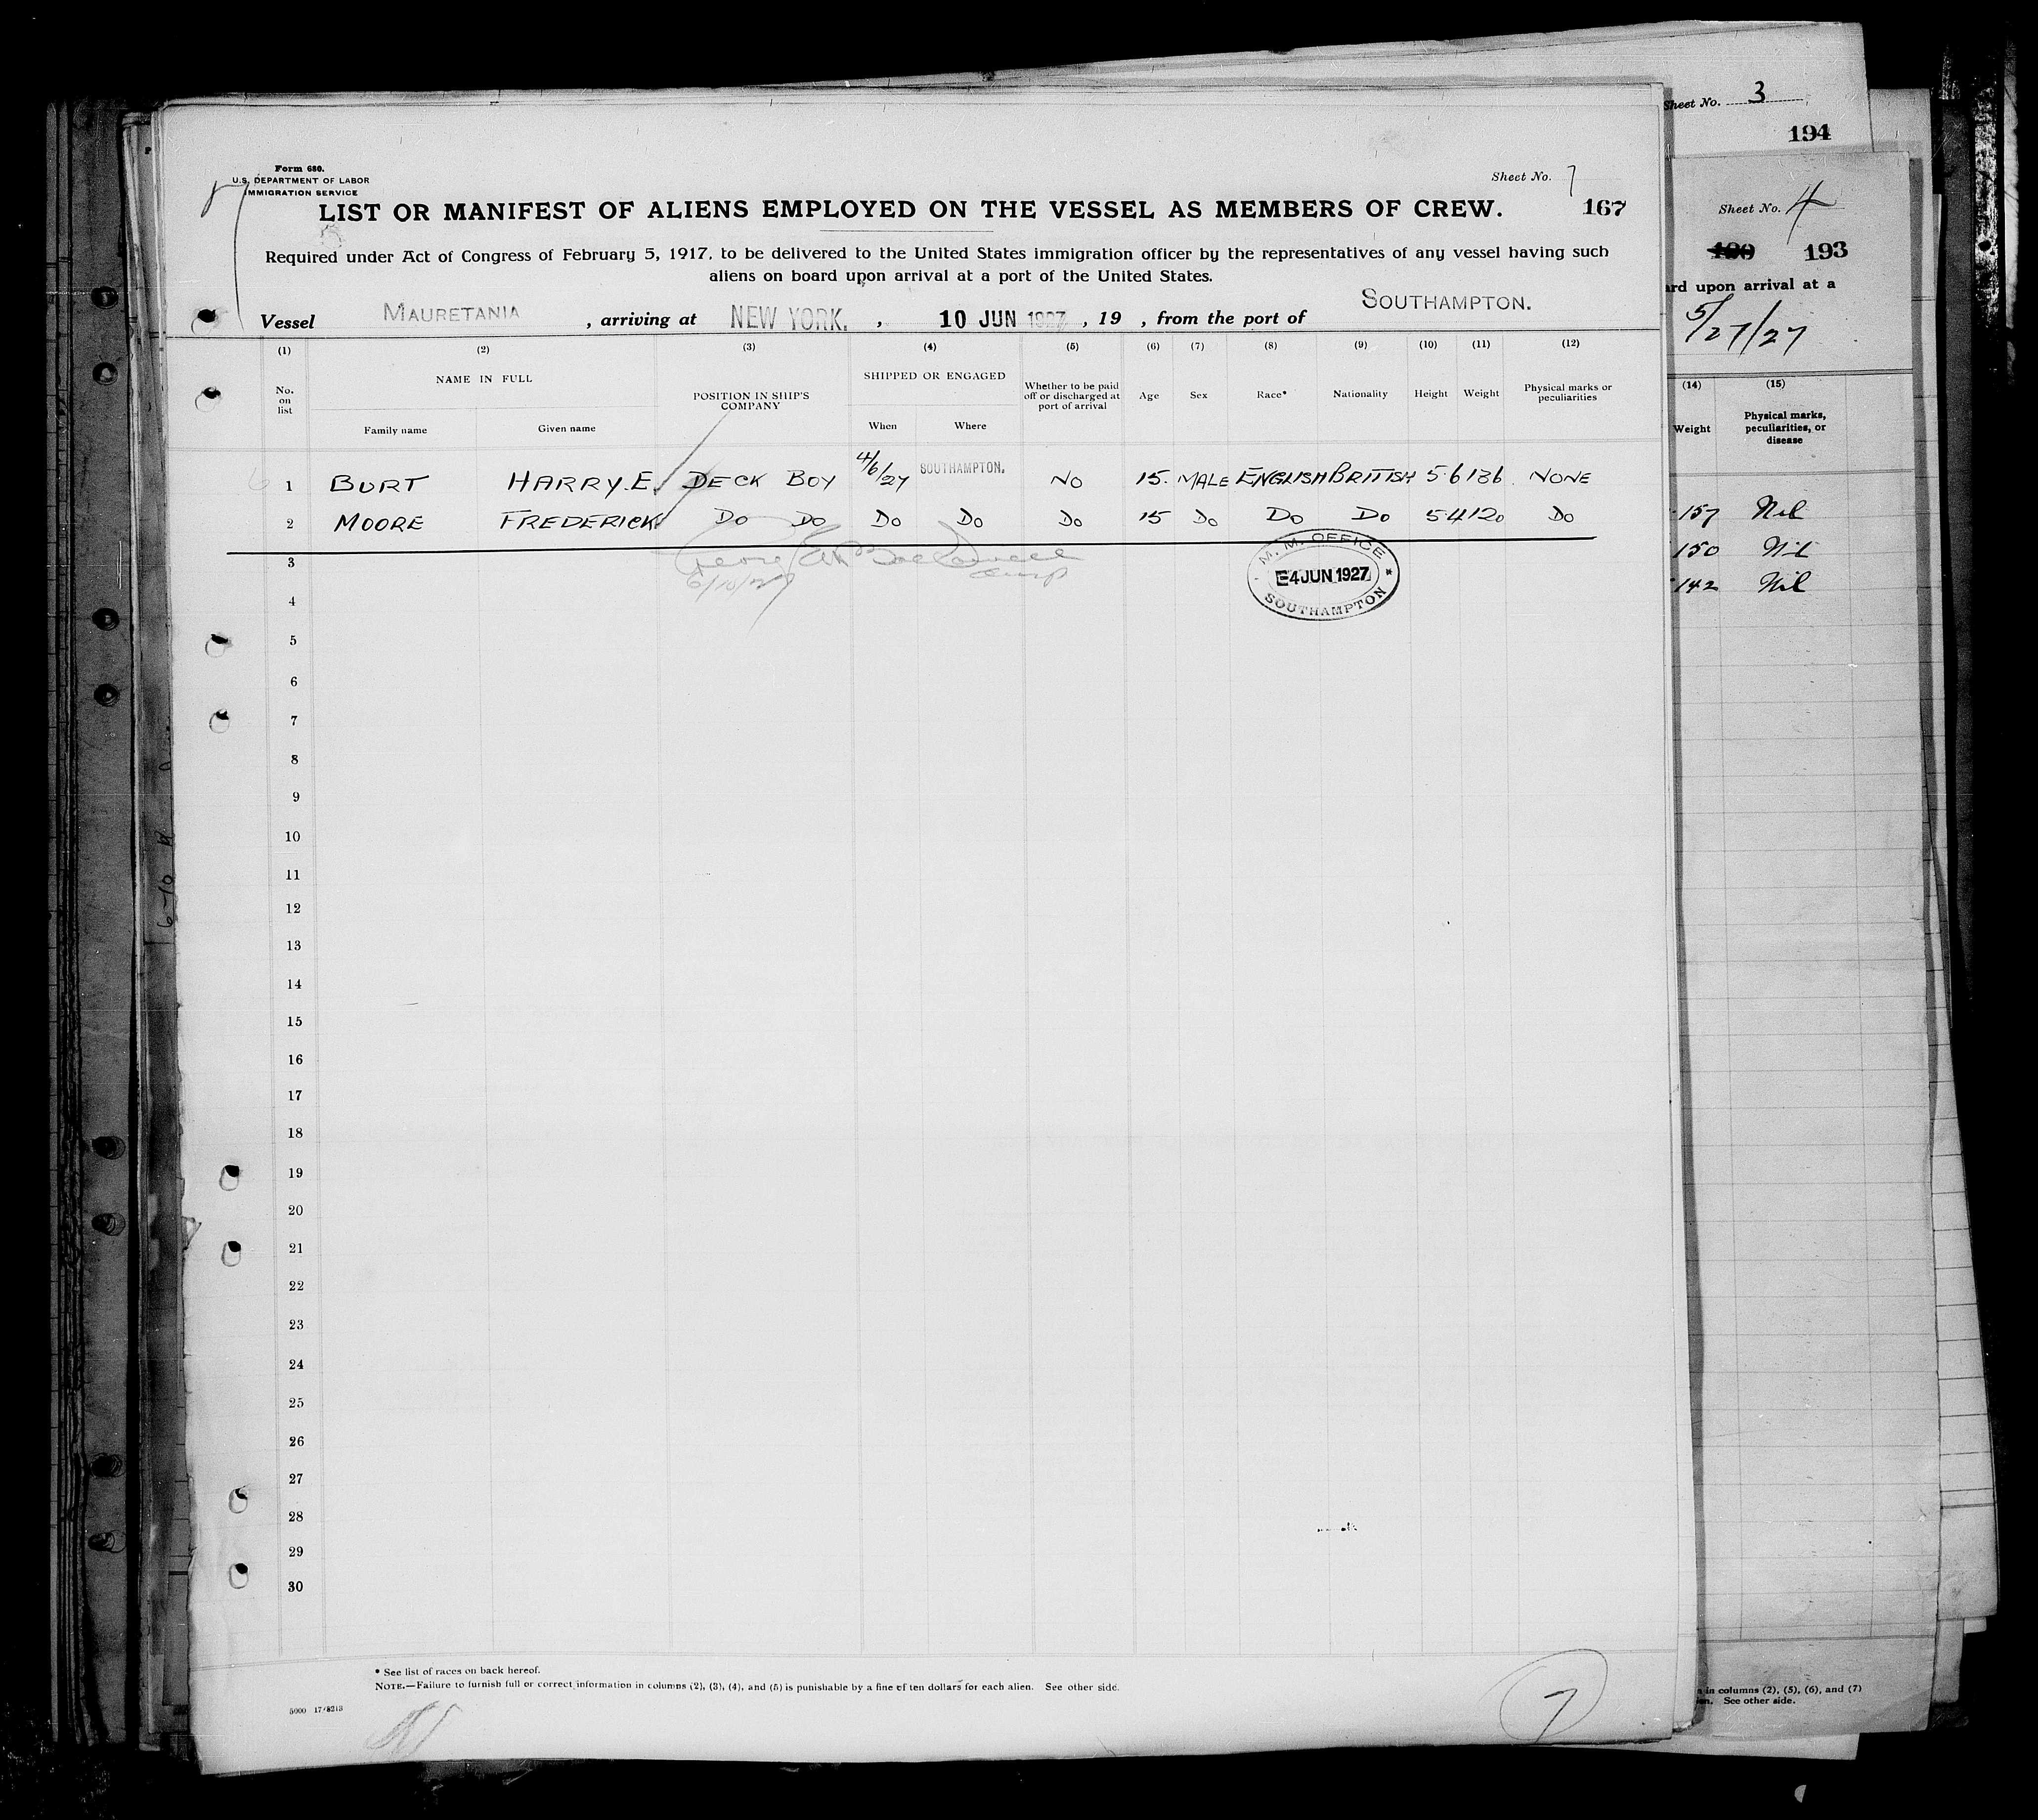 Form 680.
U.S. DEPARTMENT OF LABOR
IMMIGRATION SERVICE
Sheet No. 7
LIST OR MANIFEST OF ALIENS EMPLOYED ON THE VESSEL AS MEMBERS OF CREW.
167
Required under Act of Congress of February 5, 1917, to be delivered to the United States immigration officer by the representatives of any vessel having such
aliens on board upon arrival at a port of the United States.
Vessel MAURETANIA , arriving at NEW YORK. , 10 JUN 1927 , 19 , from the port of SOUTHAMPTON.
(1) (2) (3) (4) (5) (6) (7) (8) (9) (10) (11) (12)
No. on list
NAME IN FULL
Family name Given name
POSITION IN SHIP'S COMPANY
SHIPPED OR ENGAGED
When Where
Whether to be paid off or discharged at port of arrival
Age Sex Race* Nationality Height Weight
Physical marks or peculiarities
1 BURT HARRY.E. DECK BOY 4/6/27 SOUTHAMPTON. NO 15. MALE ENGLISH BRITISH 5·6 136 NONE
2 MOORE FREDERICK DO DO DO DO DO 15 DO DO DO 5·4 120 DO
3
6/10/27
M. M. OFFICE
4 JUN 1927
SOUTHAMPTON
4
5
6
7
8
9
10
11
12
13
14
15
16
17
18
19
20
21
22
23
24
25
26
27
28
29
30
* See list of races on back hereof.
NOTE.—Failure to furnish full or correct information in columns (2), (3), (4), and (5) is punishable by a fine of ten dollars for each alien. See other side.
5000 17-8213
7
Sheet No. 3
194
Sheet No. 4
190 193
rd upon arrival at a
5/27/27
(14) (15)
Weight
Physical marks, peculiarities, or disease
157 Nil
150 Nil
142 Nil
in columns (2), (5), (6), and (7)
See other side.
6-10